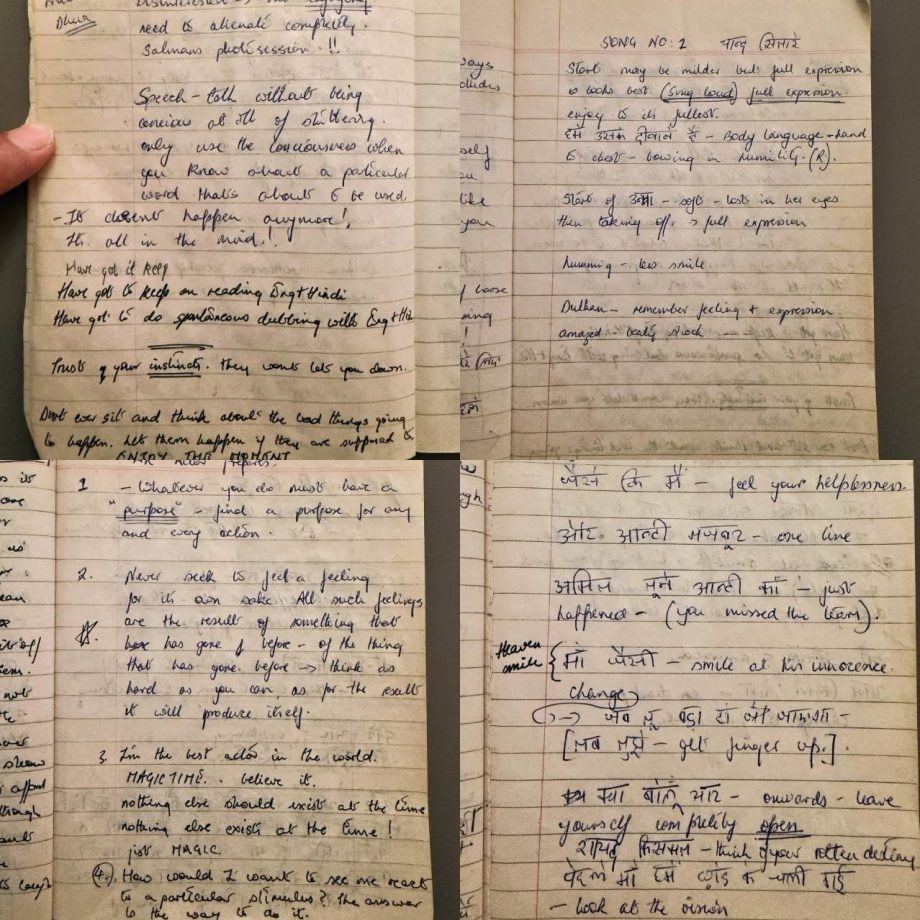 need to alienate completely.
Salmans photosession !!
Speech – talk without being
concious at all of stuttering.
only use the conciousness when
you know about a particular
word that's about to be used.
- It doesnt happen anymore!
Its all in the mind!
Have got it keep
Have got to keep on reading Eng + Hindi
Have got to do spontaneous dubbing with Eng +
Trust your instincts. They wont let you down.
Dont ever sit and think about the bad things going
to happen. Let them happen if they are supposed to
ENJOY THE MOMENT
SONG NO: 1 चाँद सितारे
Start may be milder but full expression
is looks best. (Sing loud) full expression.
enjoy to its fullest.
हम उसके दीवाने हैं – Body language – hand
to chest – bowing in humility. (R).
Start of – soft – lost in her eyes
then taking off. full expression
humming – less smile.
Dulhan – remember feeling + expression
amazed –
1 – Whatever you do must have a
"purpose" – find a purpose for any
and every action.
2. Never seek to feel a feeling
for its own sake. All such feelings
are the result of something that
has gone before – of the thing
that has gone before → think as
hard as you can, as for the result
it will produce itself.
3. I'm the best actor in the world.
MAGIC TIME. believe it.
nothing else should exist at the time
nothing else exists at the time!
just MAGIC.
(4.). How would I want to see me react
to a particular stimulus? The answer
is the way to do it.
जैसे कि मैं – feel your helplessness
और आन्टी मजबूर – one line
आन्टी को – just
happened – (you missed the team).
Heaven
smile { माँ जैसी – smile at his innocence.
change
→ जब तू बड़ा हो
[तब मुझे – get finger up.].
क्या बोलूँ यार – onwards – leave
yourself completely open
शायद – think of your rotten destiny
माँ हमें छोड़ के चली गई
– look at the vision